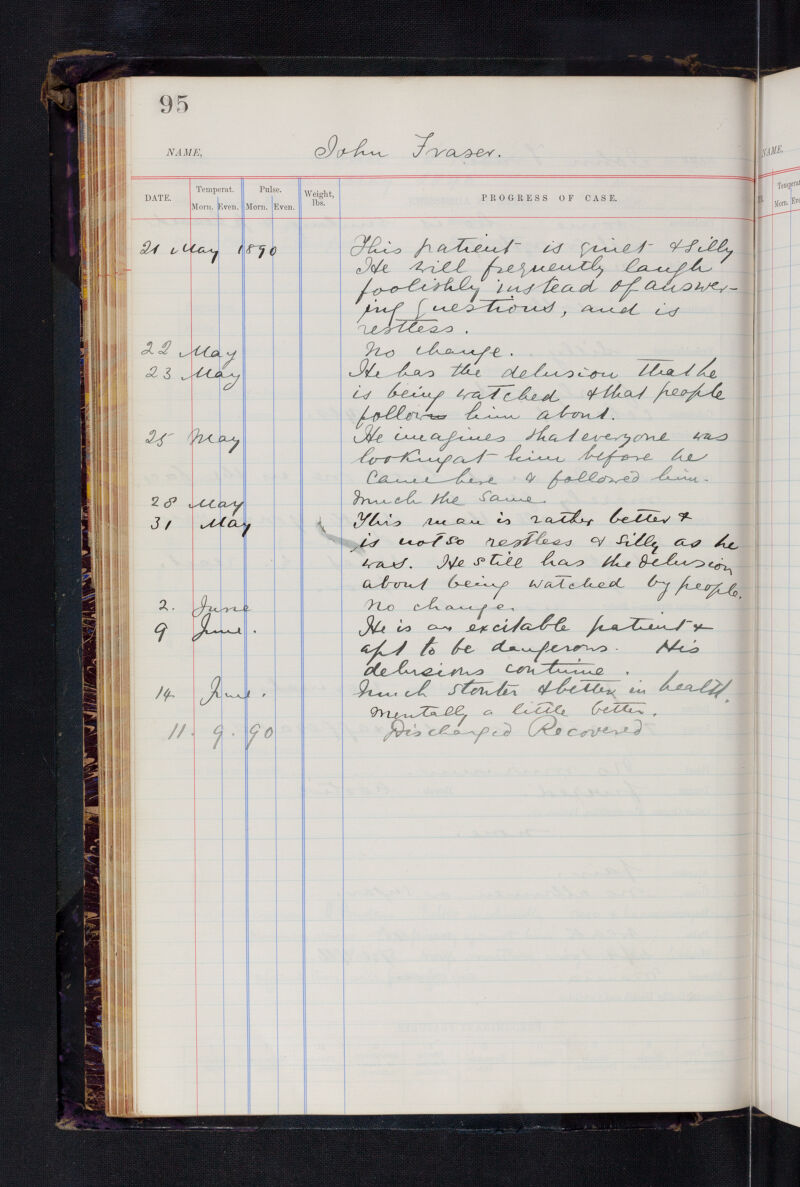 95
NAME, John Fraser.
DATE. Temperat. Pulse. Weight, lbs. PROGRESS OF CASE.
Morn. Even. Morn. Even.
21 May 1890 This patient is quiet & silly
He will frequently laugh
foolishly instead of answer-
ing questions, and is
restless.
22 May No change.
23 May He has the delusion that he
is being watched & that people
follow him about.
25 May He imagines that everyone was
looking at him before he
came here & followed him.
28 May Much the same.
31 May This man is rather better &
is not so restless or silly as he
was. He still has the delusion
about being watched by people.
2. June No change.
9 June. He is an excitable patient &
apt to be dangerous. His
delusions continue.
14 June. Much stouter & better in health.
Mentally a little better.
11.9.90 Discharged Recovered
NAME.
Temperat
Morn. Eve